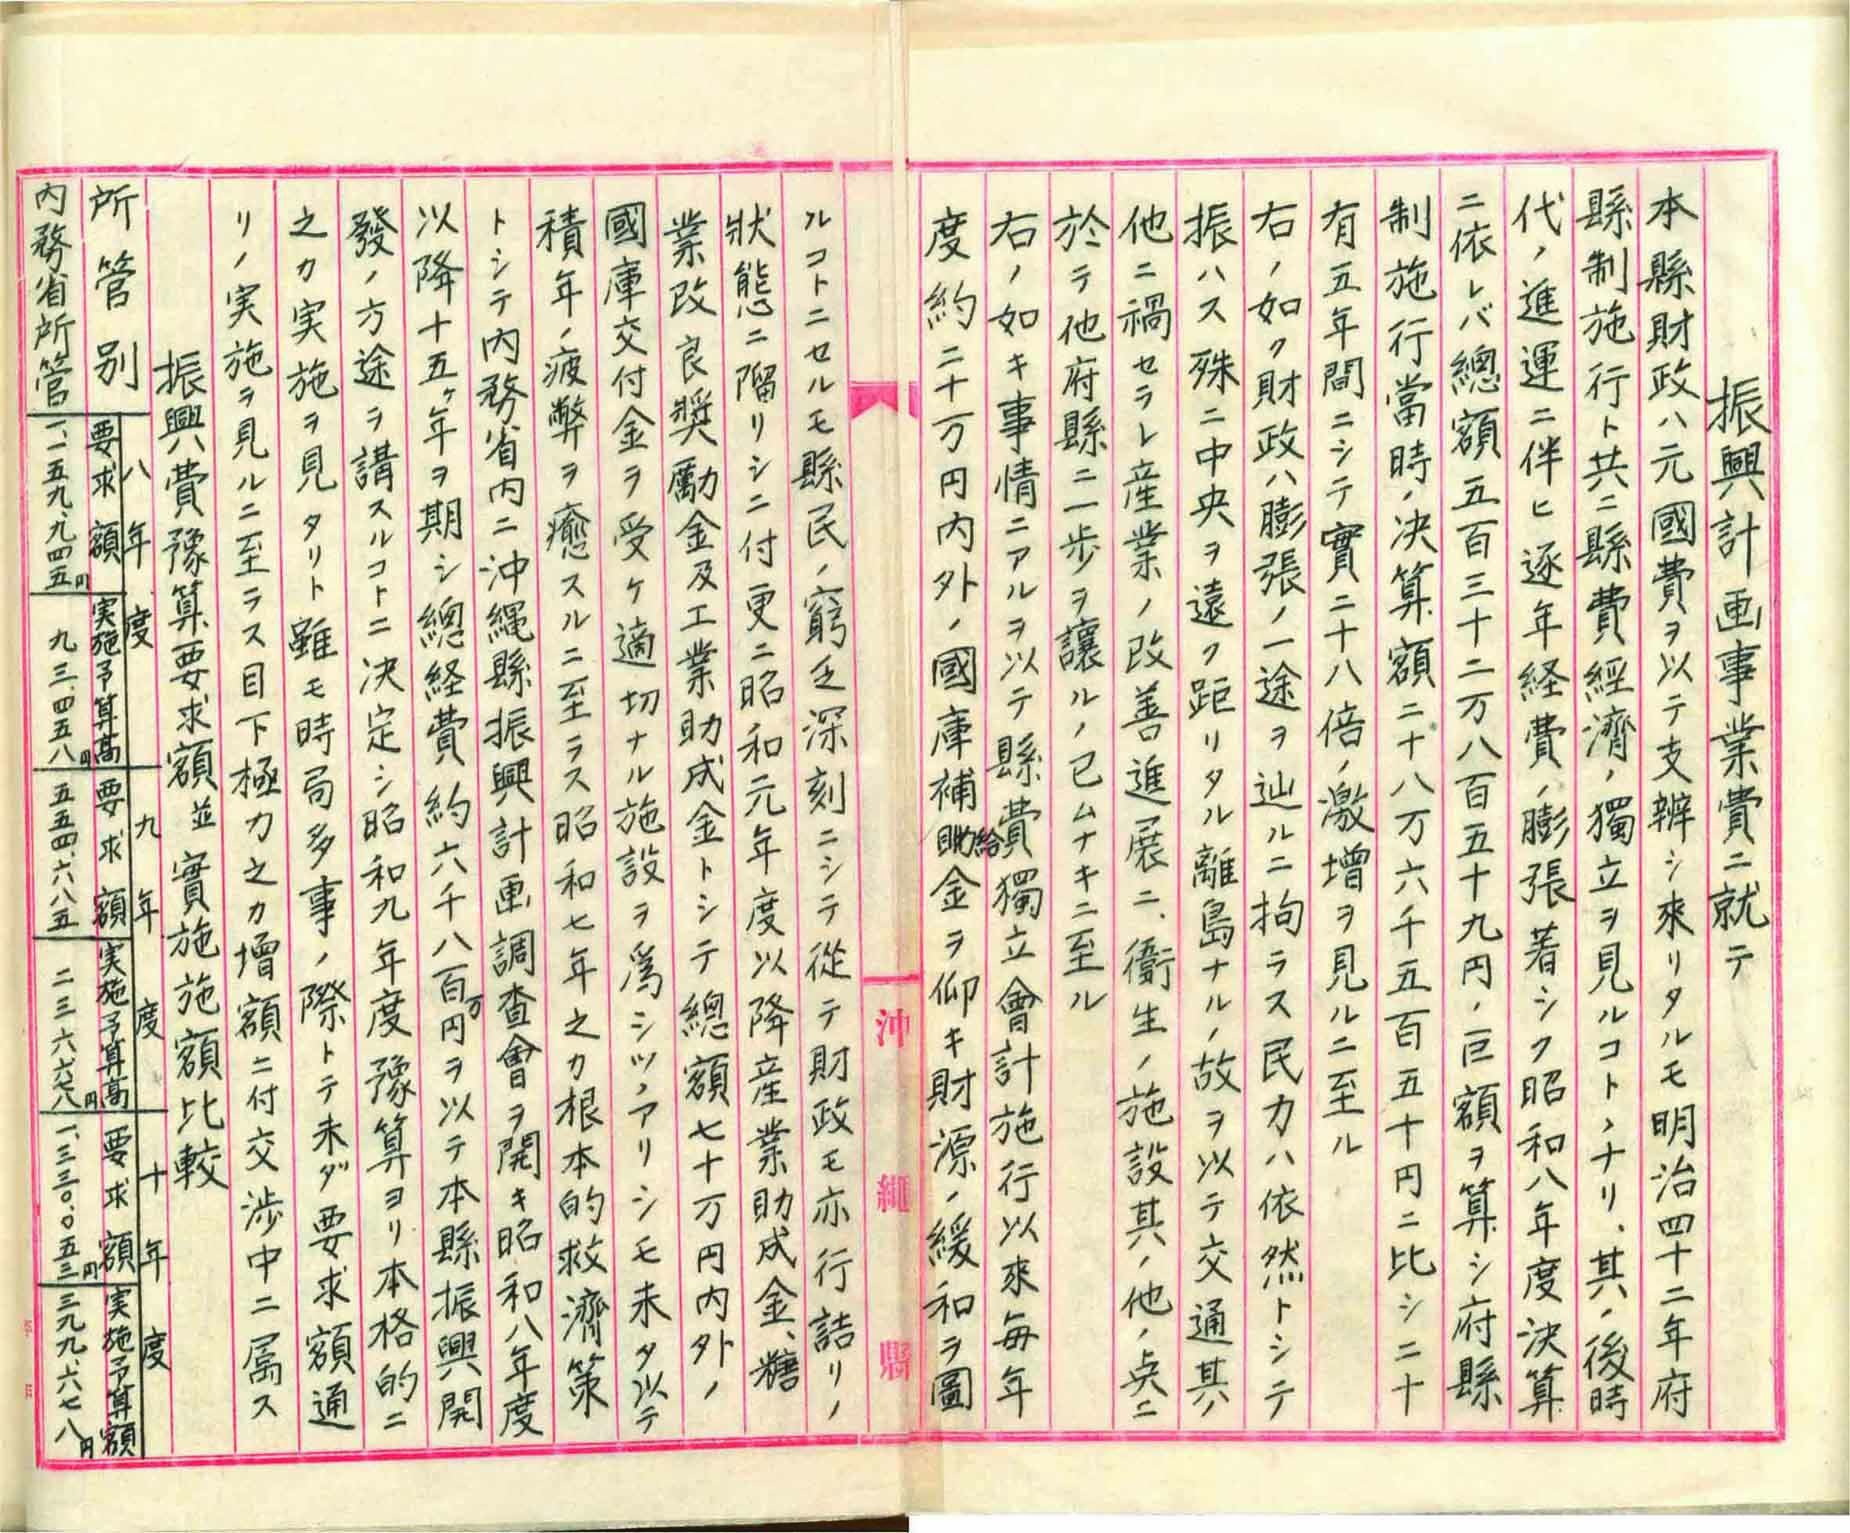 振興計画事業費ニ就テ
本縣財政ハ元國費ヲ以テ支辨シ來リタルモ明治四十二年府
縣制施行ト共ニ縣費經濟ノ獨立ヲ見ルコトヽナリ、其ノ後時
代ノ進運ニ伴ヒ逐年経費ノ膨張著シク昭和八年度決算
ニ依レバ總額五百三十二万八百五十九円ノ巨額ヲ算シ府縣
制施行當時ノ決算額二十八万六千五百五十円ニ比シ二十
有五年間ニシテ實ニ十八倍ノ激増ヲ見ルニ至ル
右ノ如ク財政ハ膨張ノ一途ヲ辿ルニ拘ラス民力ハ依然トシテ
振ハス殊ニ中央ヲ遠ク距リタル離島ナルノ故ヲ以テ交通其ノ
他ニ禍セラレ産業ノ改善進展ニ、衞生ノ施設其ノ他ノ点ニ
於テ他府縣ニ一歩ヲ讓ルノ已ムナキニ至ル
右ノ如キ事情ニアルヲ以テ縣費獨立會計施行以來毎年
度約二十万円内外ノ國庫補給金ヲ仰キ財源ノ緩和ヲ圖
沖縄縣
ルコトニセルモ縣民ノ窮乏深刻ニシテ從テ財政モ亦行詰リノ
狀態ニ陷リシニ付更ニ昭和元年度以降産業助成金、糖
業改良獎勵金及工業助成金トシテ總額七十万円内外ノ
國庫交付金ヲ受ケ適切ナル施設ヲ爲シツヽアリシモ未タ以テ
積年ノ疲弊ヲ癒スルニ至ラス昭和七年之カ根本的救濟策
トシテ内務省内ニ沖縄縣振興計画調査會ヲ開キ昭和八年度
以降十五ヶ年ヲ期シ總経費約六千八百万円ヲ以テ本縣振興開
發ノ方途ヲ講スルコトニ決定シ昭和九年度豫算ヨリ本格的ニ
之カ実施ヲ見タリト雖モ時局多事ノ際トテ未ダ要求額通
リノ実施ヲ見ルニ至ラス目下極力之カ増額ニ付交渉中ニ属ス
振興費豫算要求額並實施施額比較
所管別 八年度 九年度 十年度
要求額 実施予算高 要求額 実施予算高 要求額 実施予算額
内務省所管 一、一五九、九四五円 九三、四五八円 五五四、六八五 二三六、六七八円 一、三三〇、〇五三円 三九九、六七八円